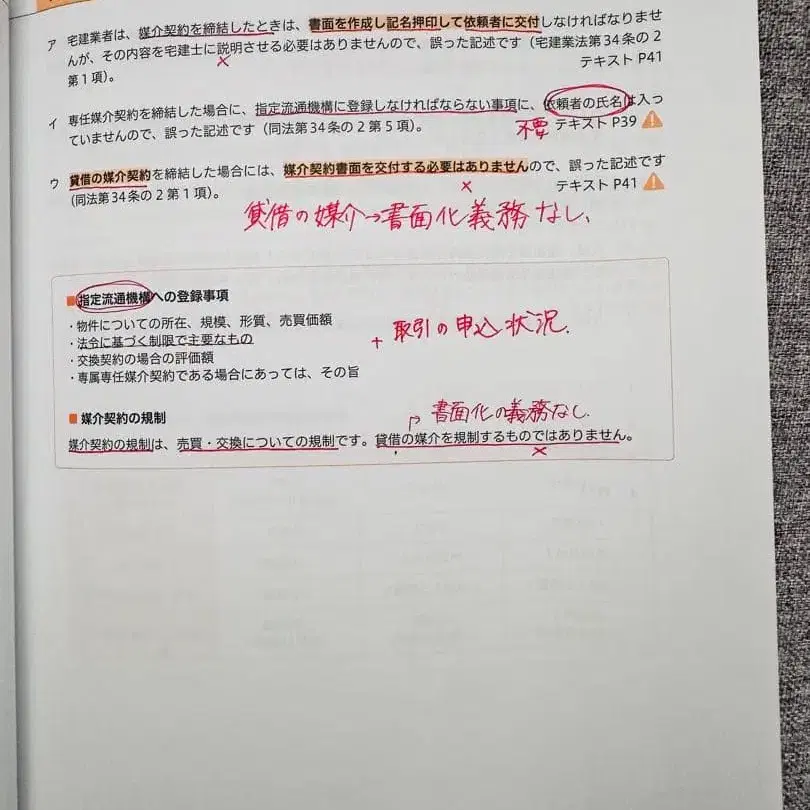 ア 宅建業者は、媒介契約を締結したときは、書面を作成し記名押印して依頼者に交付しなければなりませ
んが、その内容を宅建士に説明させる必要はありませんので、誤った記述です（宅建業法第34条の2
×
第1項）。
テキスト P41
イ 専任媒介契約を締結した場合に、指定流通機構に登録しなければならない事項に、依頼者の氏名は入っ
ていませんので、誤った記述です（同法第34条の2第5項）。
不要 テキスト P39
ウ 貸借の媒介契約を締結した場合には、媒介契約書面を交付する必要はありませんので、誤った記述です
×
（同法第34条の2第1項）。
テキスト P41
貸借の媒介→書面化義務なし、
■指定流通機構への登録事項
・物件についての所在、規模、形質、売買価額
・法令に基づく制限で主要なもの
+ 取引の申込状況.
・交換契約の場合の評価額
・専属専任媒介契約である場合にあっては、その旨
■ 媒介契約の規制
書面化の義務なし.
媒介契約の規制は、売買・交換についての規制です。貸借の媒介を規制するものではありません。
×